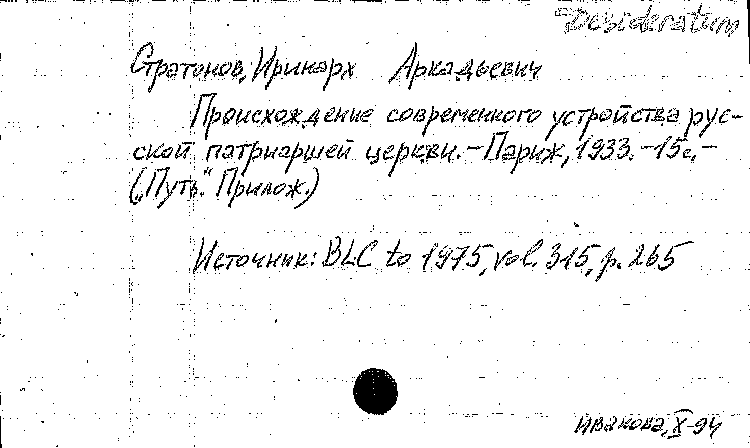 Desideratum
Стратонов, Иринарх Аркадьевич
Происхождение современного устройства рус-
ской патриаршей церкви. – Париж, 1933. – 15с. –
(„Путь“. Прилож.)
Источник: BLC to 1975, vol. 315, p. 265
Иванова, X-94